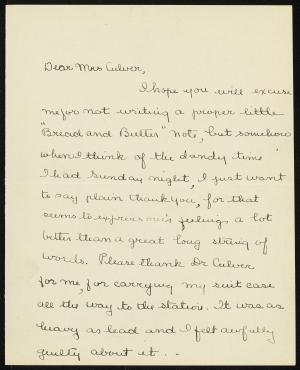 Dear Mrs Culver,
I hope you will excuse
me for not writing a proper little
"Bread and Butter" note, but somehow
when I think of the dandy time
I had Sunday night, I just want
to say plain thank you, for that
seems to express one's feelings a lot
better than a great long string of
words. Please thank Dr Culver
for me, for carrying my suit case
all the way to the station. It was as
heavy as lead and I felt awfully
guilty about it . .